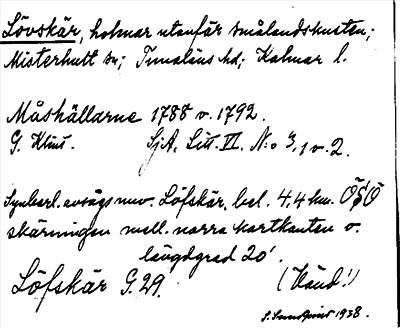 Lövskär, holmar utanför smålandskusten;
Misterhult sn; Tunaläns hd; Kalmar l.
Måshällarne 1788 o. 1792.
G. Klint. SjA. Litt. VI. N:o 3, 1 o. 2.
Synbarl. avsågs nuv. Löfskär, bel. 4.4 km. ÖSÖ
skärningen mell. norra kartkanten o.
längdgrad 20'.
Löfskär G. 29. (Händ!)
S. Sundqvist 1938.